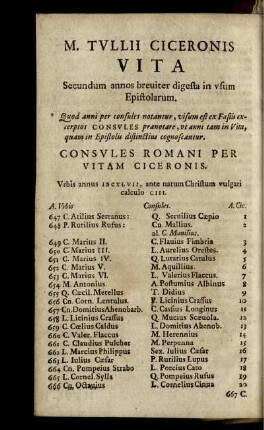 M. TVLLII CICERONIS
VITA
Secundum annos breuiter digesta in vsum
Epistolarum.
Quod anni per consules notantur, visum est ex Fastis ex-
cerptos CONSVLES pranotare, vt anni tam in Vita,
quam in Epistolis distinctius cognoscantur.
CONSVLES ROMANI PER
VITAM CICERONIS.
Vrbis annus ante natum Christum vulgari
calculo CIII.
A. Vrbis Consules. A. Cic.
647 C. Atilius Serranus: Q. Servilius Cæpio 1
648 P. Rutilius Rufus: Cn. Mallius. 2
al. C Manilius.
649 C. Marius II. C. Flauius Fimbria 3
650 C. Marius III. L. Aurelius Orestes. 4
651 C. Marius IV. Q. Lutatius Catulus 5
652 C. Marius V. M. Aquillius. 6
653 C. Marius VI. L. Valerius Flaccus. 7
654 M. Antonius. A Postumius Albinus 8
655 Q. Cæcil. Metellus T. Didius 9
656 Cn. Corn. Lentulus. P. Licinius Crassus 10
657 Cn. Domitius Ahenobarb. C. Cassius Longinus 11
658 L. Licinius Crassus Q. Mucius Scæuola. 12
659 C. Cœlius Caldus L. Domitius Ahenob. 13
660 C. Valer. Flaccus M. Herennius 14
661 C. Claudius Pulcher M. Perpenna 15
662 L. Marcius Philippus Sex. Iulius Cæsar 16
663 L. Iulius Cæsar P. Rutilius Lupus 17
664 Cn. Pompeius Strabo L. Porcius Cato 18
665 L. Cornel. Sylla Q. Pompeius Rufus 19
666 Cn. Octauius L. Cornelius Cinna 20
667 C.